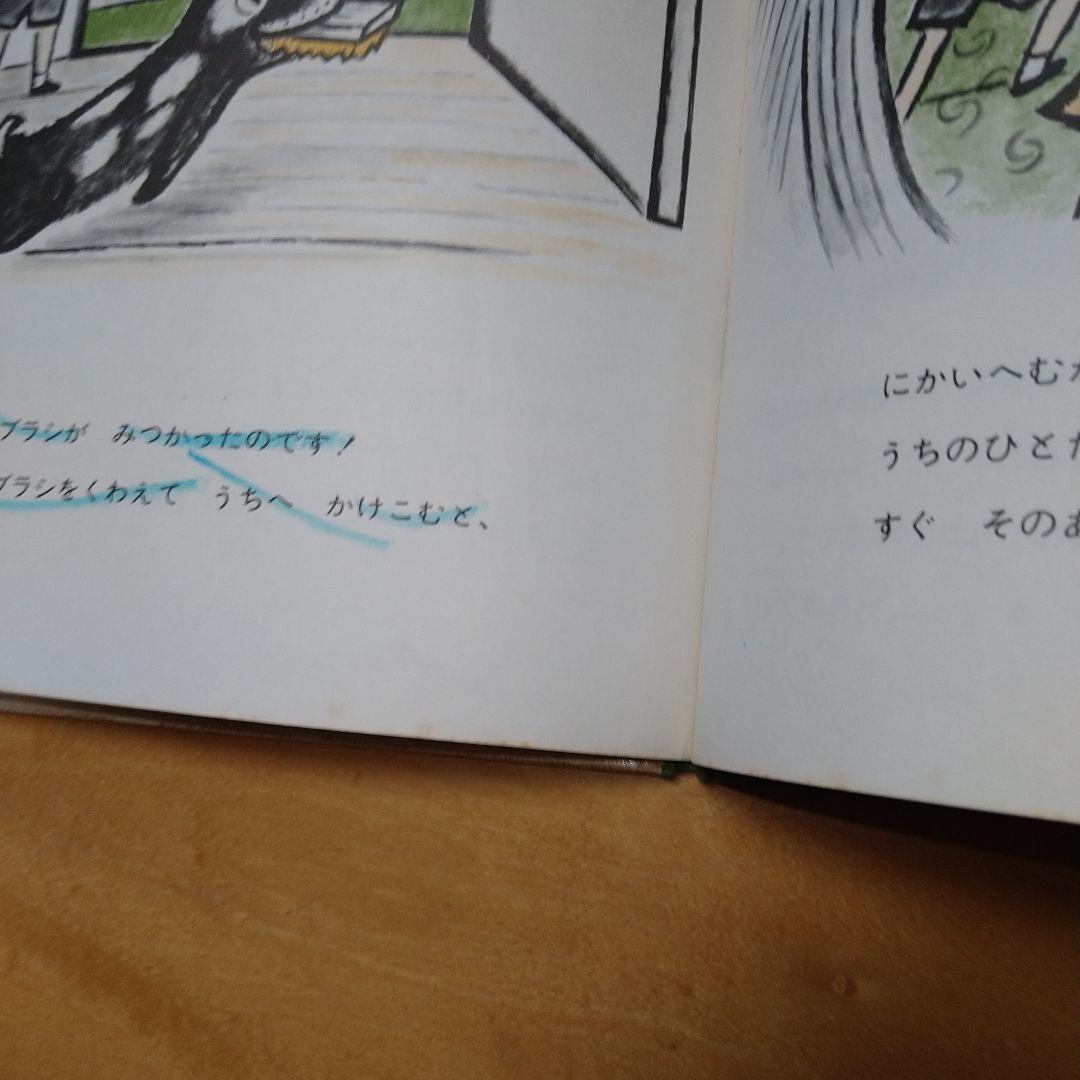 ブラシが　みつかったのです!
ブラシをくわえて　うちへ　かけこむと、
にかいへむ
うちのひと
すぐ　その